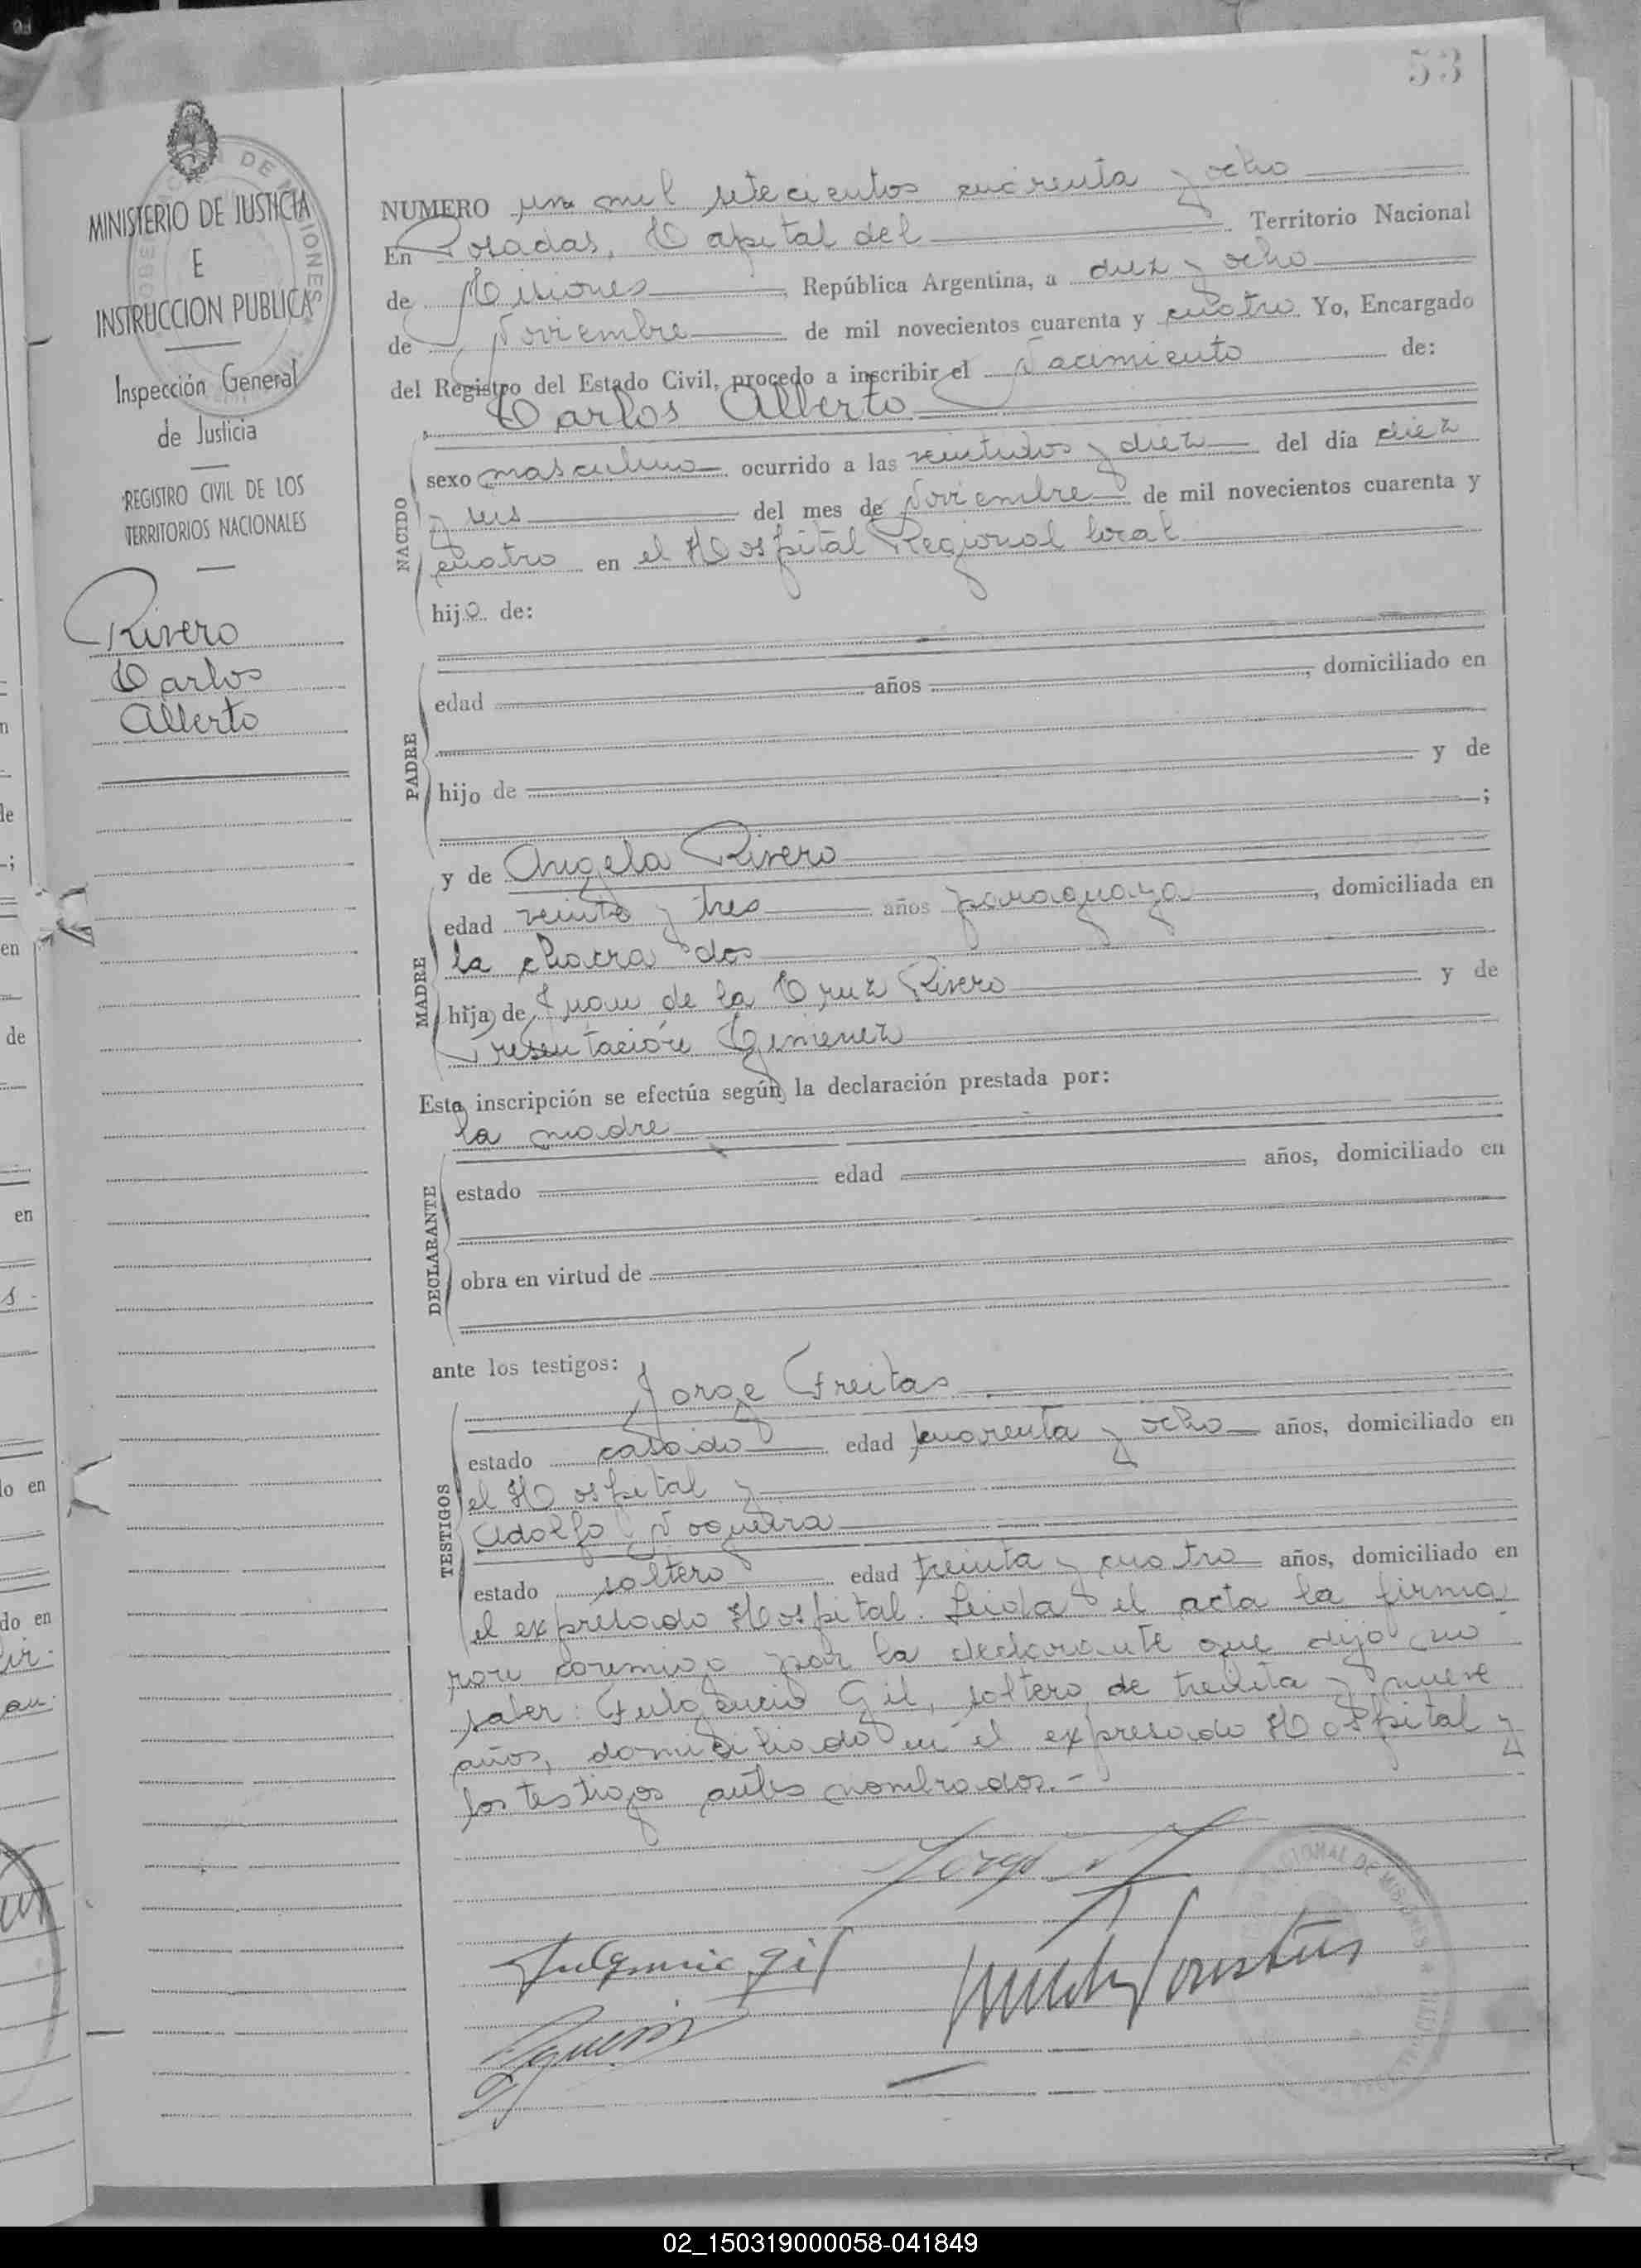 53
MINISTERIO DE JUSTICIA
E
INSTRUCCION PUBLICA
Inspección General
de Justicia
REGISTRO CIVIL DE LOS
TERRITORIOS NACIONALES
Rivero
Carlos
Alberto
NUMERO un mil setecientos cuarenta y ocho
En Posadas, Capital del Territorio Nacional
de Misiones, República Argentina, a diez y ocho
de Noviembre de mil novecientos cuarenta y cuatro Yo, Encargado
del Registro del Estado Civil, procedo a inscribir el Nacimiento de:
Carlos Alberto
NACIDO
sexo masculino ocurrido a las veintidos y diez del día diez
y seis del mes de Noviembre de mil novecientos cuarenta y
cuatro en el Hospital Regional local
hijo de:
PADRE
edad años, domiciliado en
hijo de y de
;
y de Angela Rivero
MADRE
edad veinte y tres años paraguaya, domiciliada en
la chacra dos
hija de Juan de la Cruz Rivero y de
Presentación Gimenez
Esta inscripción se efectúa según la declaración prestada por:
la madre
DECLARANTE
estado edad años, domiciliado en
obra en virtud de
ante los testigos:
Jorge Freitas
TESTIGOS
estado casado edad cuarenta y ocho años, domiciliado en
el Hospital y
Adolfo Nogueira
estado soltero edad treinta y cuatro años, domiciliado en
el expresado Hospital. Leida el acta la firma
ron conmigo por la declarante que dijo no
saber: Fulgencio Gil, soltero de treinta y nueve
años, domiciliado en el expresado Hospital y
los testigos antes nombrados.-
Jorge
Fulgencio Gil
02_150319000058-041849